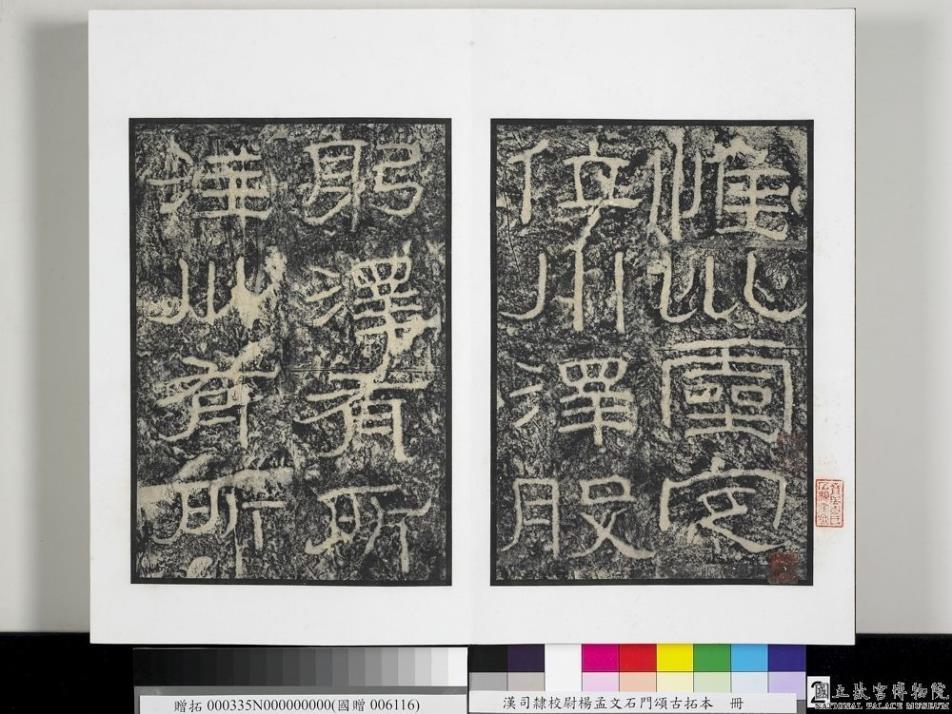 惟巛靈定
位川澤股
躬澤有所
注川有所
贈拓 000335N000000000(國贈 006116)
漢司隸校尉楊孟文石門頌古拓本 冊
2
國立故宮博物院
NATIONAL PALACE MUSEUM